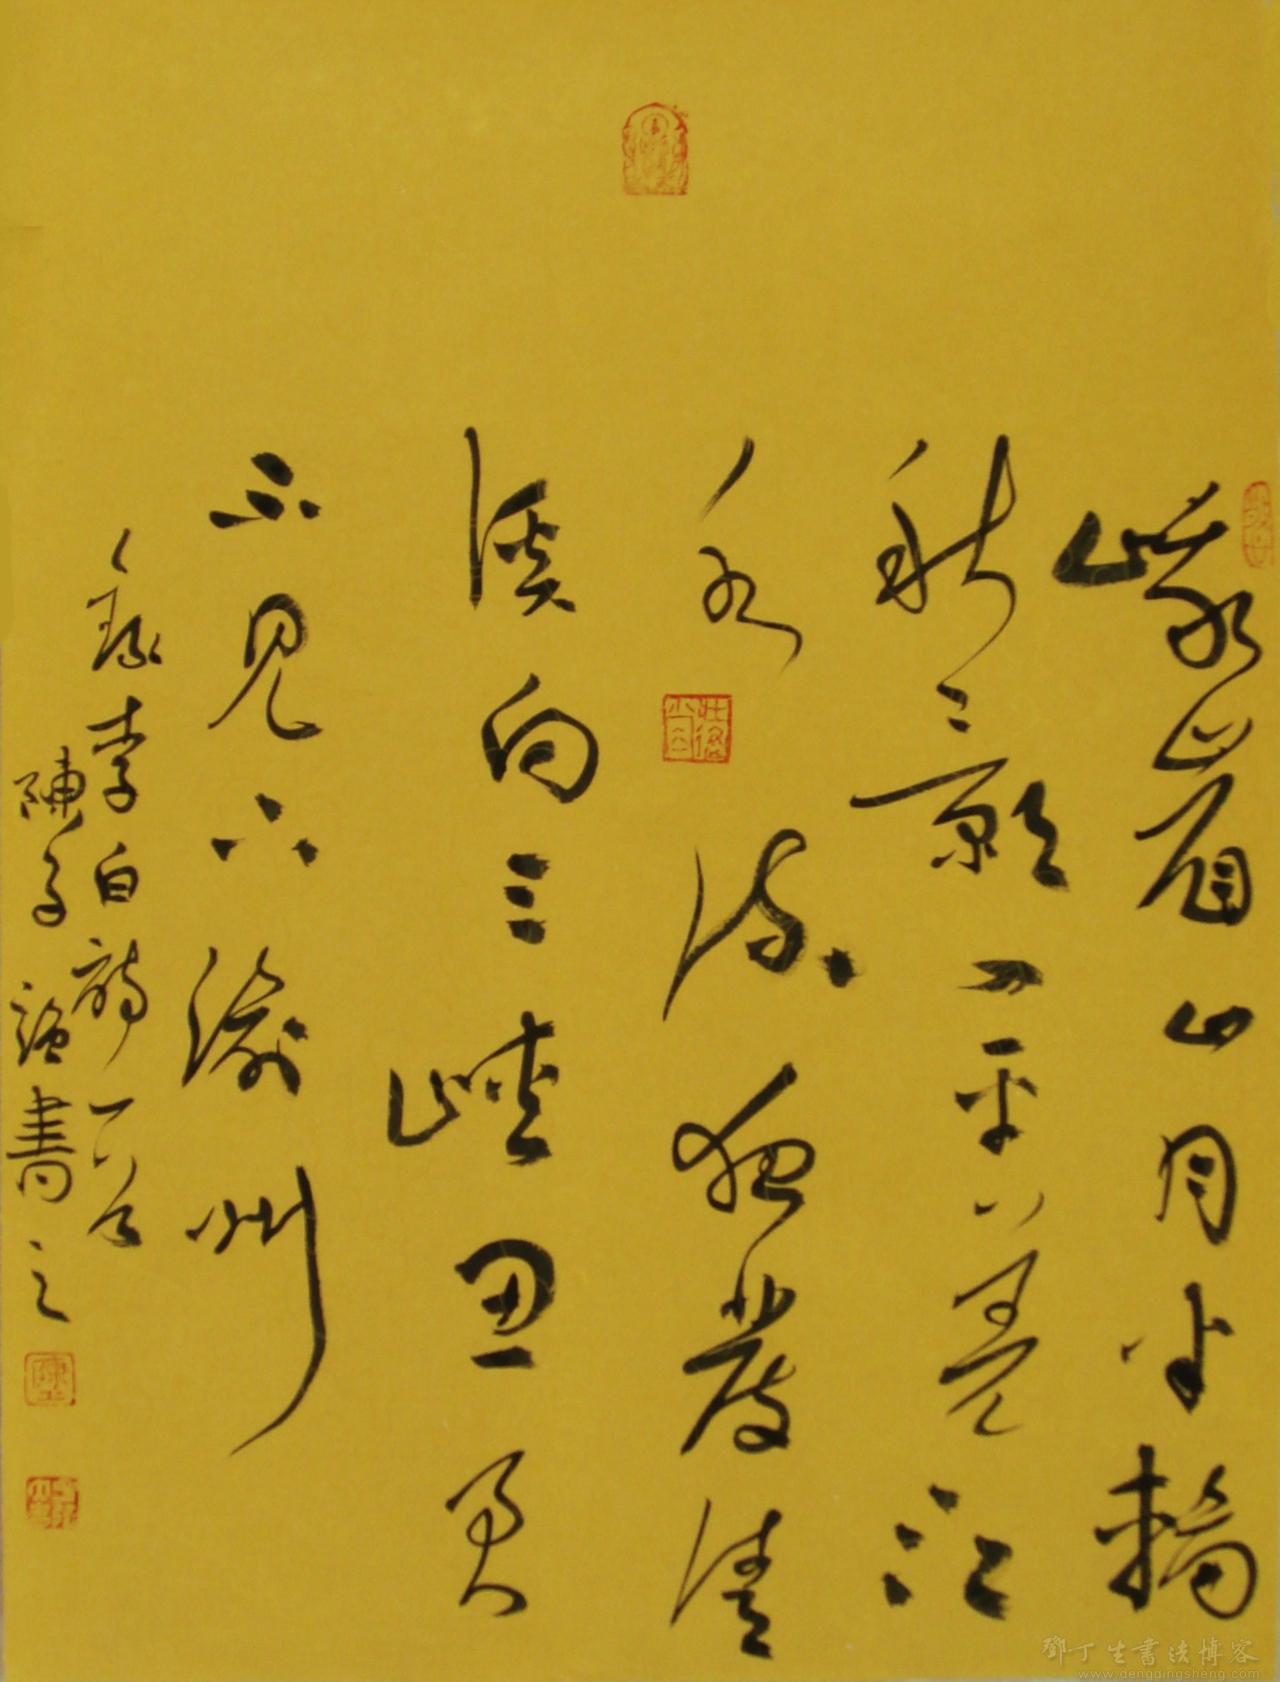 峨嵋山月半輪
秋影入平羌江
水流夜發清
溪向三峽思君
不見下渝州
錄李白詩一首
陳 書之
鄧丁生書法博客
www.dengdingsheng.com